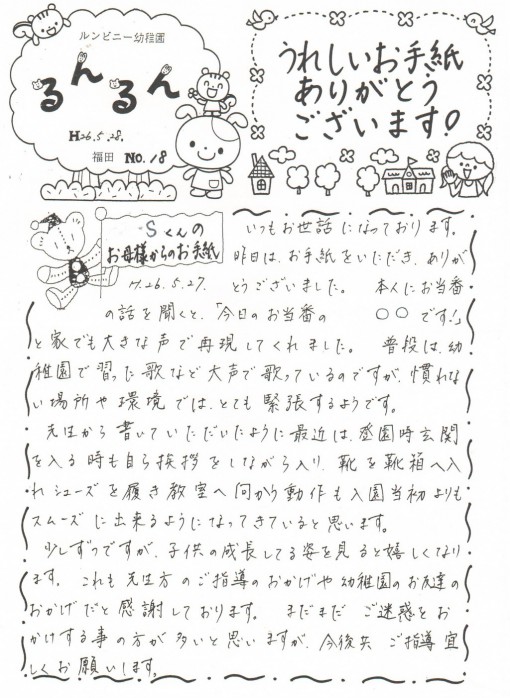 ルンビニー幼稚園
るんるん
H26.5.28.
福田 No.18
うれしいお手紙
ありがとう
ございます!
Sくんの
お母様からのお手紙
H.26.5.27.
いつもお世話になっております。
昨日は、お手紙をいただき、ありが
とうございました。 本人にお当番
の話を聞くと、「今日のお当番の 〇〇 です!」
と家でも大きな声で再現してくれました。 普段は、幼
稚園で習った歌など大声で歌っているのですが、慣れな
い場所や環境では、とても緊張するようです。
先生から書いていただいたように最近は、登園時玄関
を入る時も自ら挨拶をしながら入り、靴を靴箱へ入
れシューズを履き教室へ向かう動作も入園当初よりも
スムーズに出来るようになってきていると思います。
少しずつですが、子供の成長してる姿を見ると嬉しくなり
ます。 これも先生方のご指導のおかげや幼稚園のお友達の
おかげだと感謝しております。 まだまだ ご迷惑をお
かけする事の方が多いと思いますが、今後共 ご指導宜
しくお願いします。